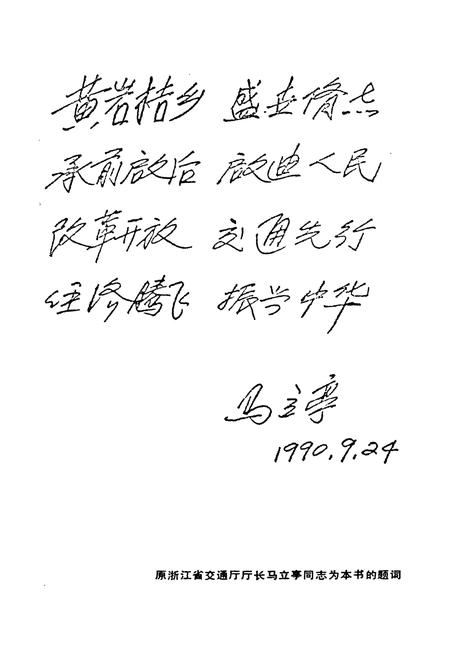 黄岩桔乡 盛世修志
承前启后 启迪人民
改革开放 交通先行
经济腾飞 振兴中华
马立亭
1990.9.24
原浙江省交通厅厅长马立亭同志为本书的题词